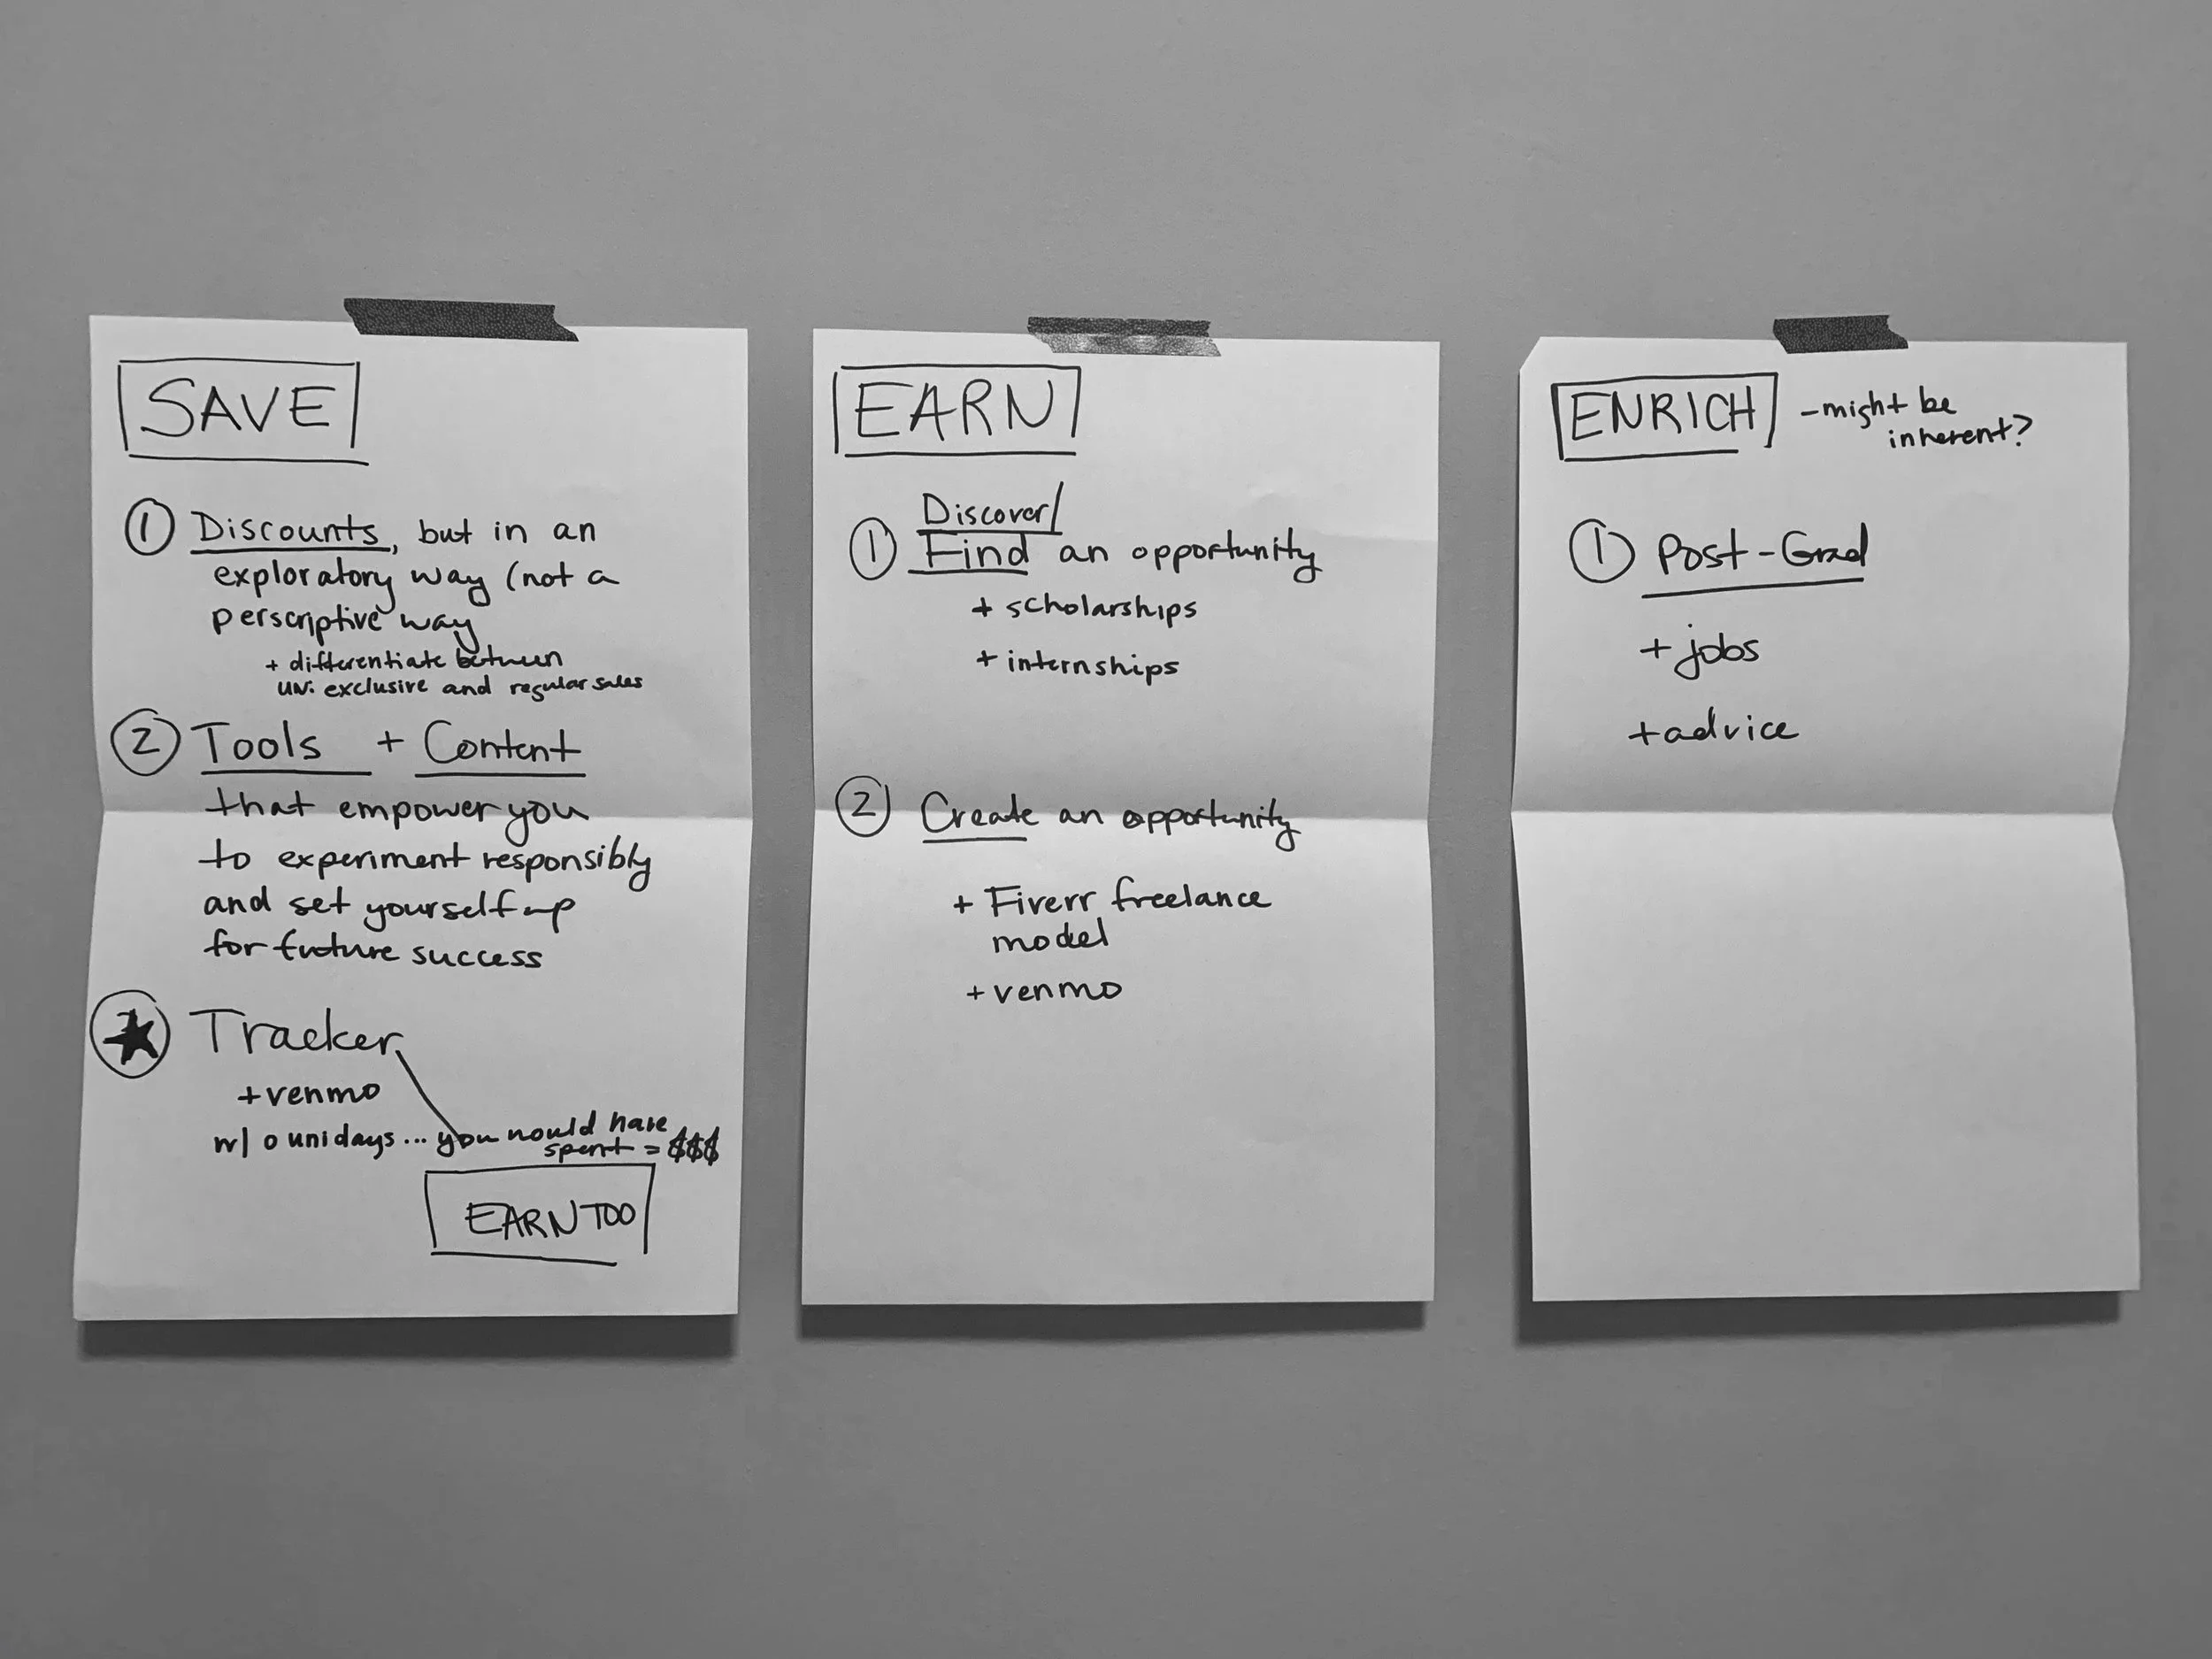 SAVE
① Discounts, but in an
exploratory way (not a
perscriptive way
+ differentiate between
UNi exclusive and regular sales
② Tools + Content
that empower you
to experiment responsibly
and set yourself up
for future success
★ Tracker
+ venmo
w/o unidays... you would have
spent = $$$
EARN TOO
EARN
Discover/
① Find an opportunity
+ scholarships
+ internships
② Create an opportunity
+ Fiverr freelance
model
+ venmo
ENRICH - might be
inherent?
① Post-Grad
+ jobs
+ advice